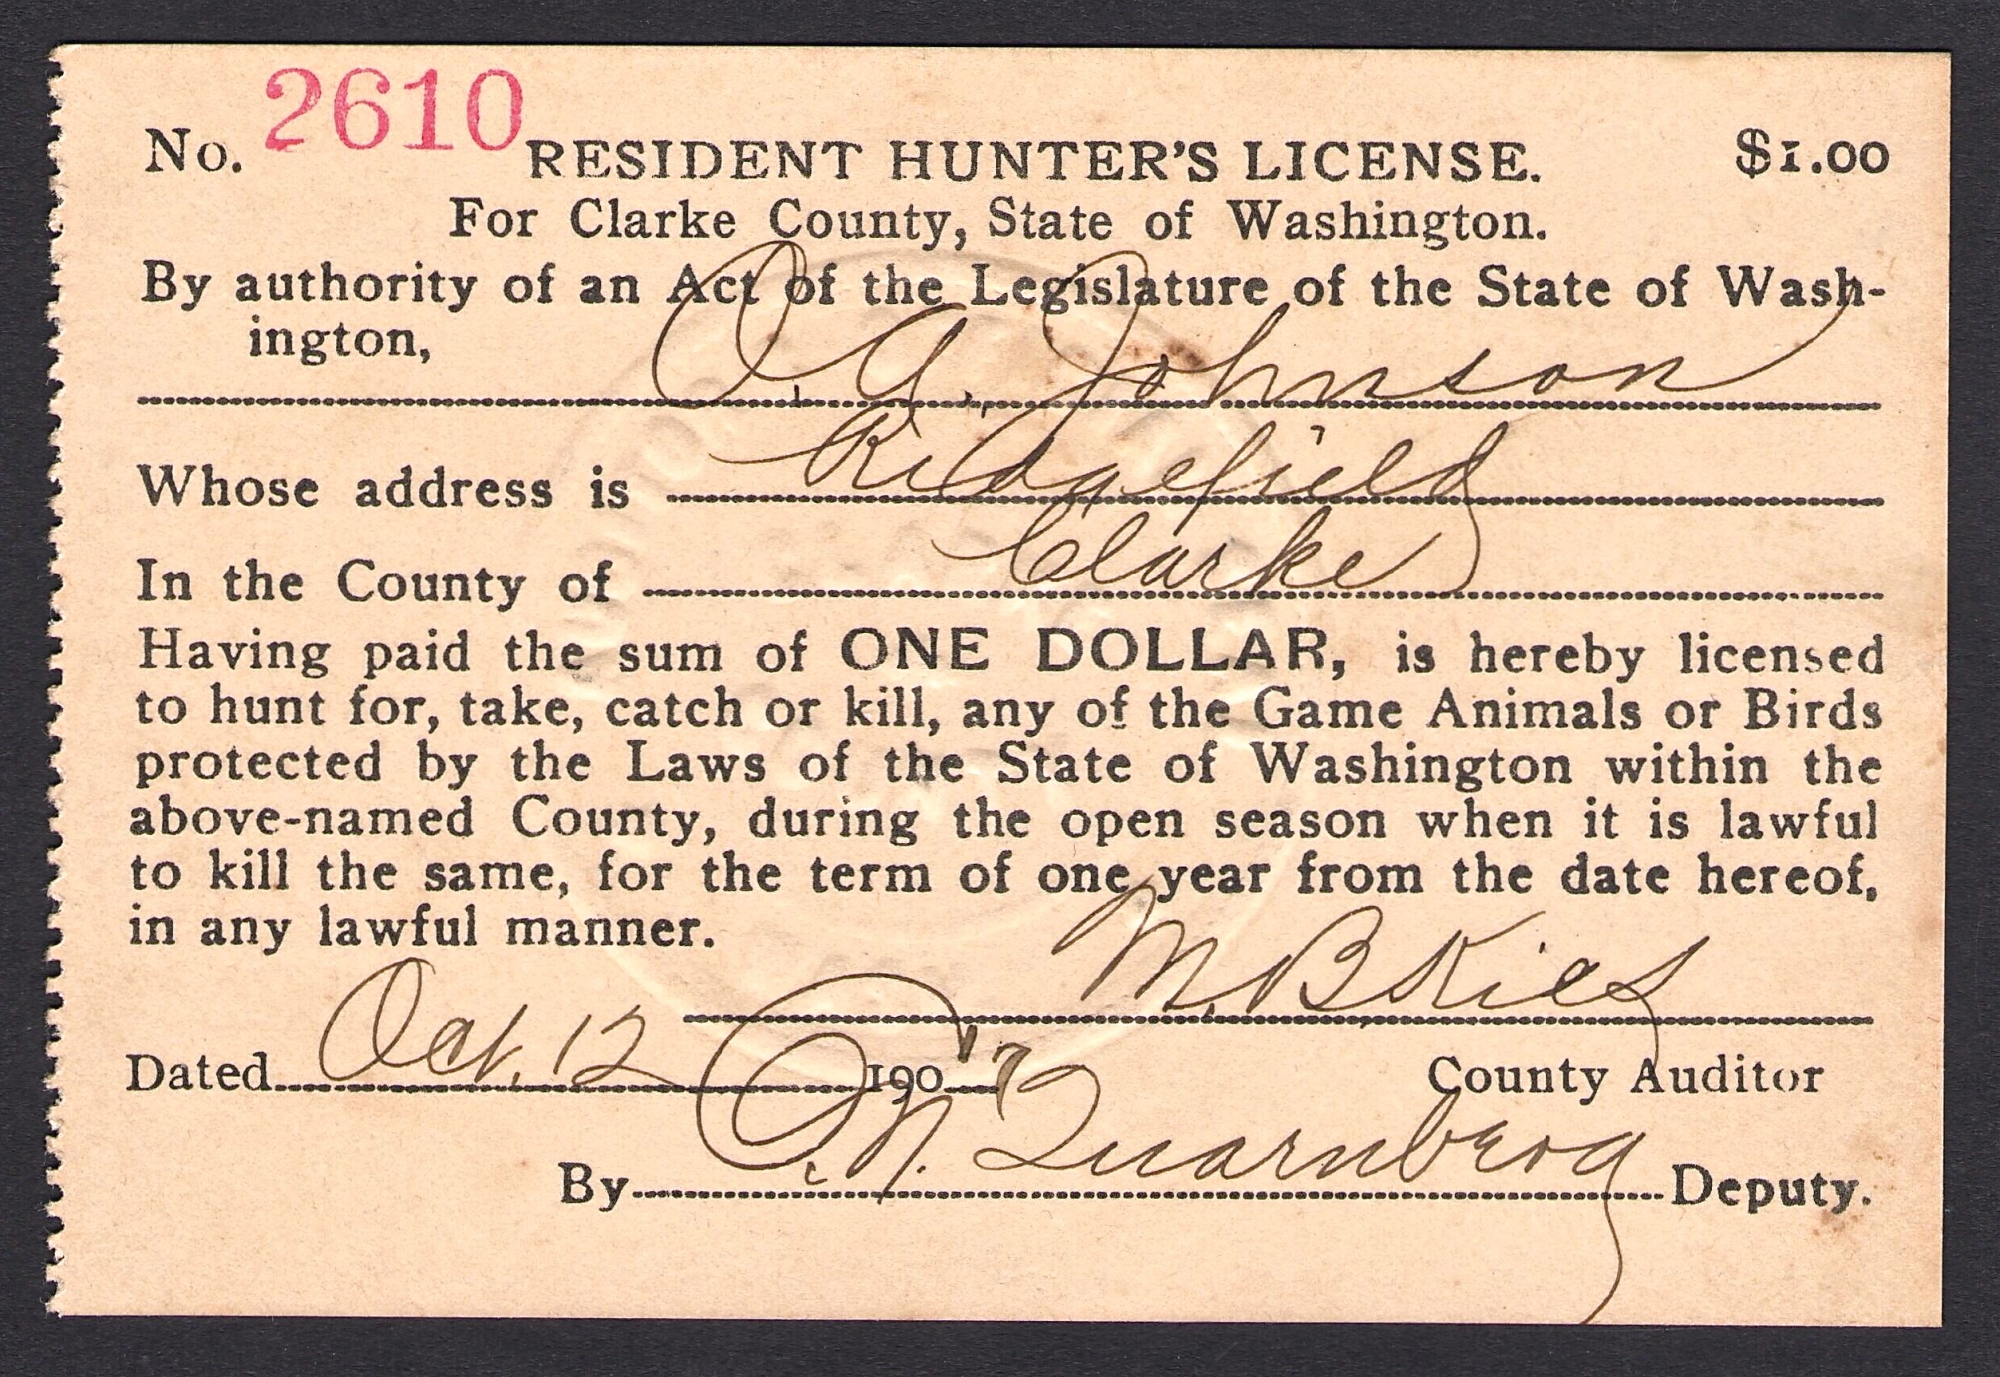 No. 2610 RESIDENT HUNTER'S LICENSE. $1.00
For Clarke County, State of Washington.
By authority of an Act of the Legislature of the State of Wash-
ington,
O. A. Johnson
Whose address is Ridgefield
In the County of Clarke
Having paid the sum of ONE DOLLAR, is hereby licensed
to hunt for, take, catch or kill, any of the Game Animals or Birds
protected by the Laws of the State of Washington within the
above-named County, during the open season when it is lawful
to kill the same, for the term of one year from the date hereof,
in any lawful manner.
M. B. Kies
Dated Oct. 12 190 7 County Auditor
By Quarnberg Deputy.